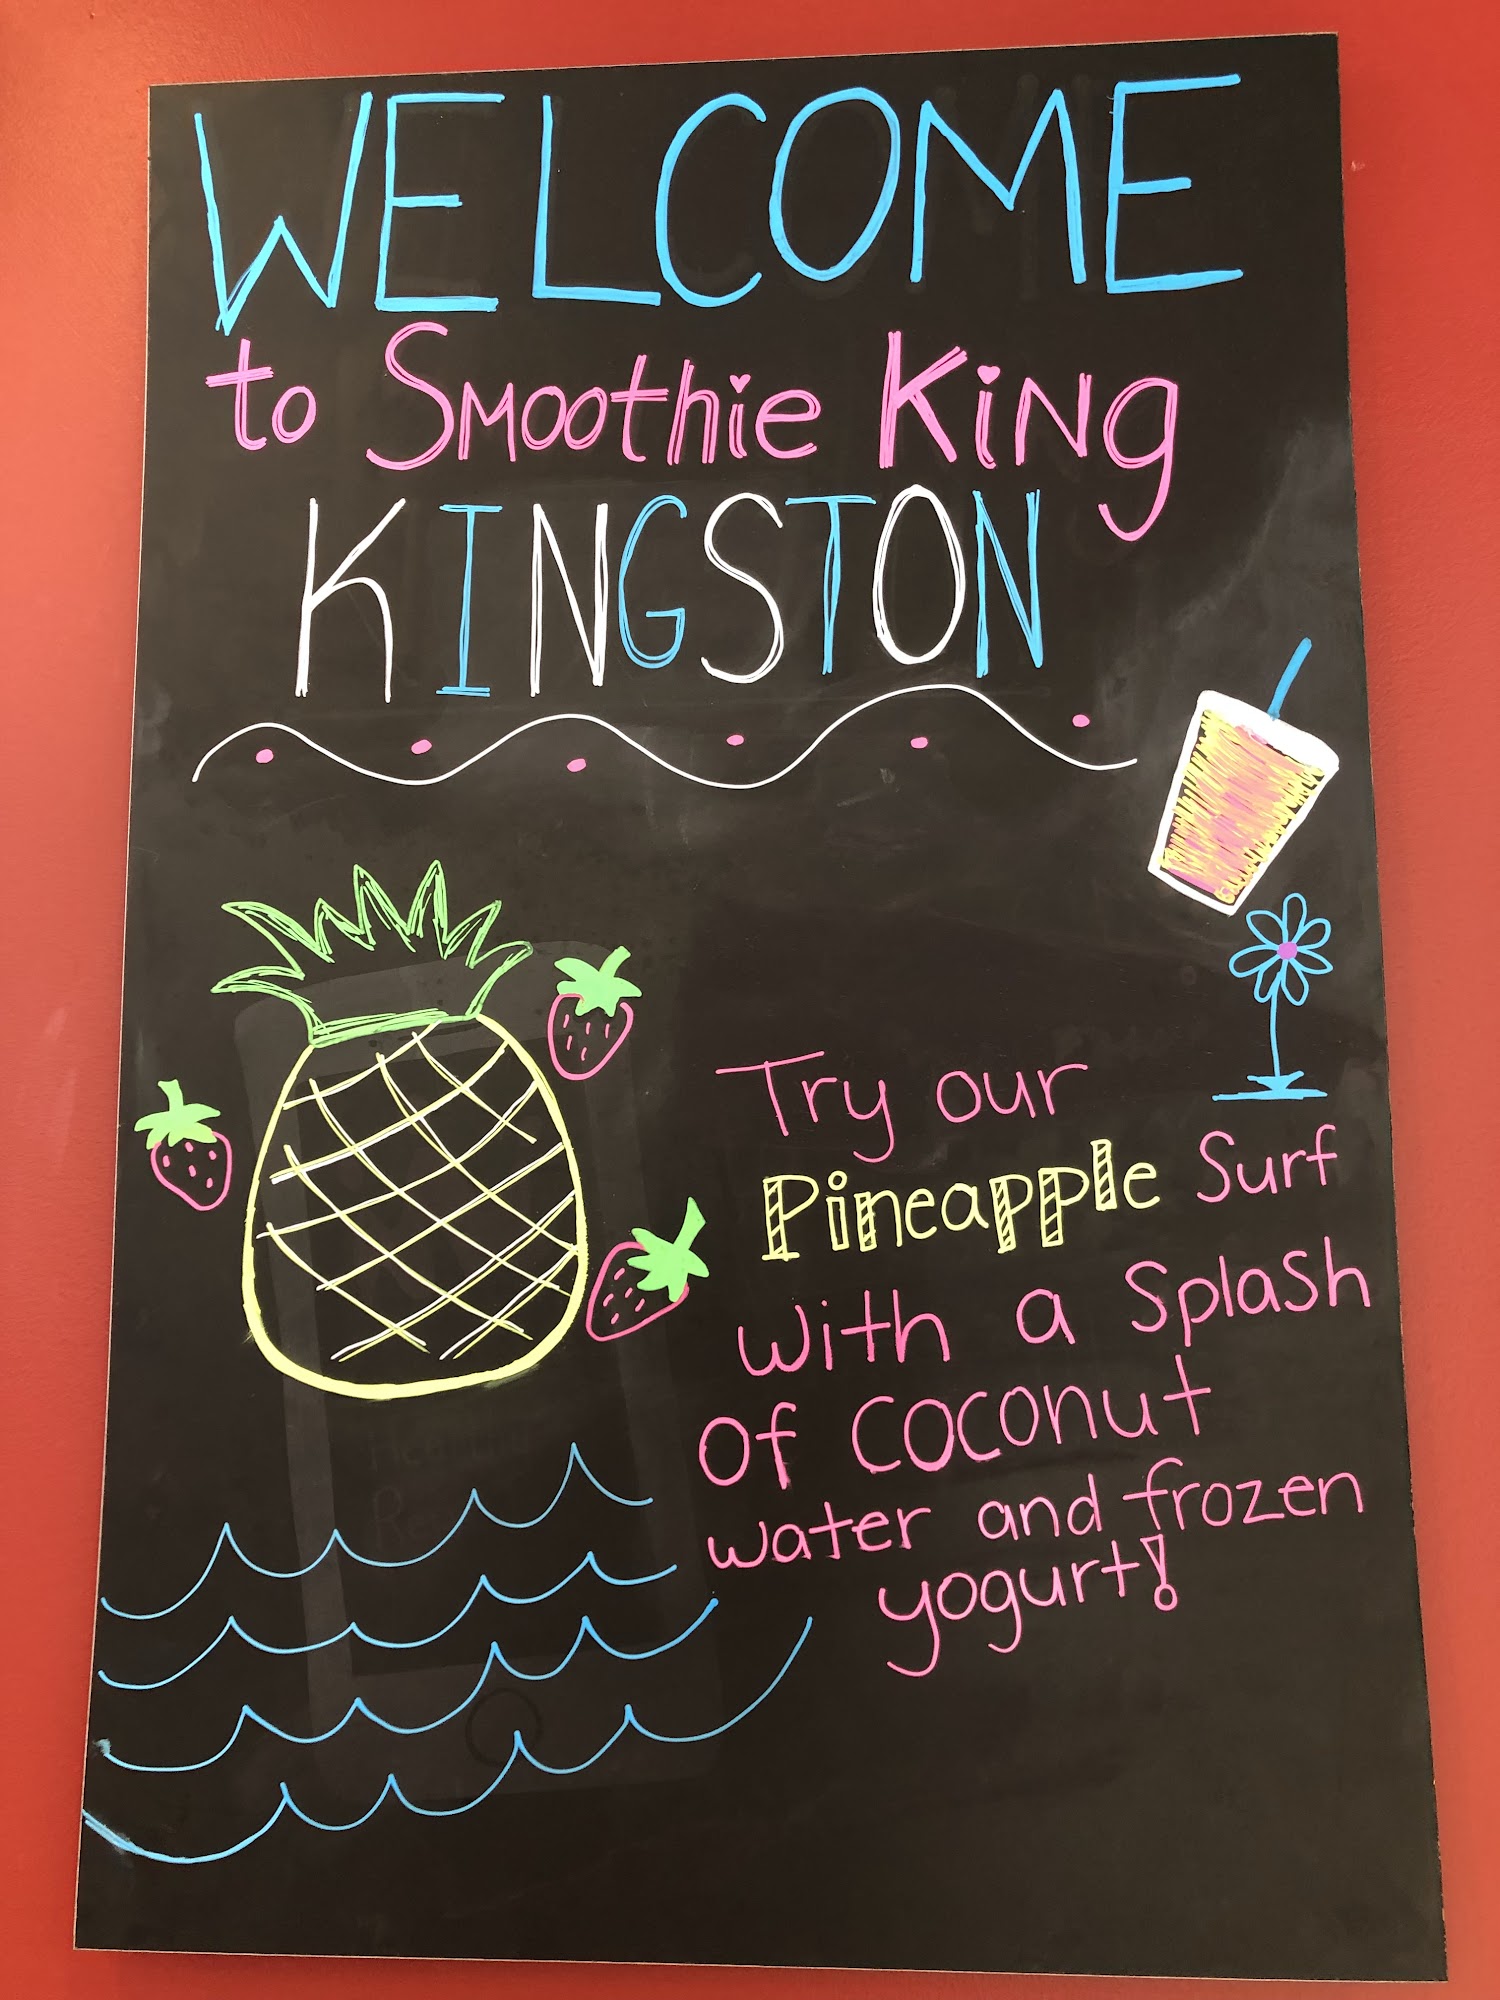 WELCOME
to Smoothie King
KINGSTON
Try our
Pineapple Surf
with a splash
of coconut
water and frozen
yogurt!